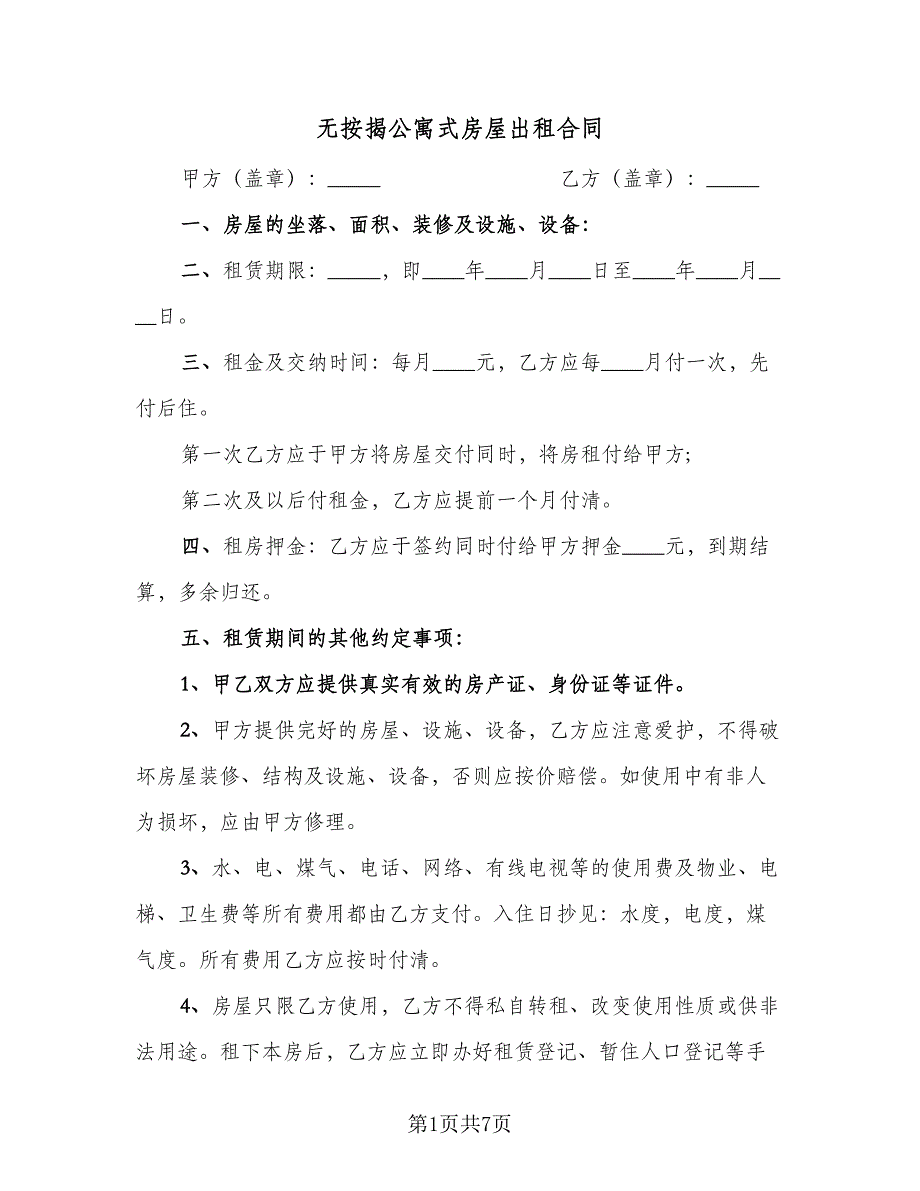 无按揭公寓式房屋出租合同
甲方（盖章）：_____ 乙方（盖章）：_____
一、房屋的坐落、面积、装修及设施、设备：
二、租赁期限：_____，即____年____月____日至____年____月__
__日。
三、租金及交纳时间：每月____元，乙方应每____月付一次，先
付后住。
第一次乙方应于甲方将房屋交付同时，将房租付给甲方;
第二次及以后付租金，乙方应提前一个月付清。
四、租房押金：乙方应于签约同时付给甲方押金____元，到期结
算，多余归还。
五、租赁期间的其他约定事项：
1、甲乙双方应提供真实有效的房产证、身份证等证件。
2、甲方提供完好的房屋、设施、设备，乙方应注意爱护，不得破
坏房屋装修、结构及设施、设备，否则应按价赔偿。如使用中有非人
为损坏，应由甲方修理。
3、水、电、煤气、电话、网络、有线电视等的使用费及物业、电
梯、卫生费等所有费用都由乙方支付。入住日抄见：水度，电度，煤
气度。所有费用乙方应按时付清。
4、房屋只限乙方使用，乙方不得私自转租、改变使用性质或供非
法用途。租下本房后，乙方应立即办好租赁登记、暂住人口登记等手
第1页共7页